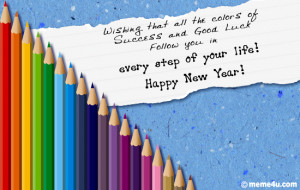 Wishing that all the colors of
Success and Good Luck
Follow you in
every step of your life!
Happy New Year!
@ meme4u.com